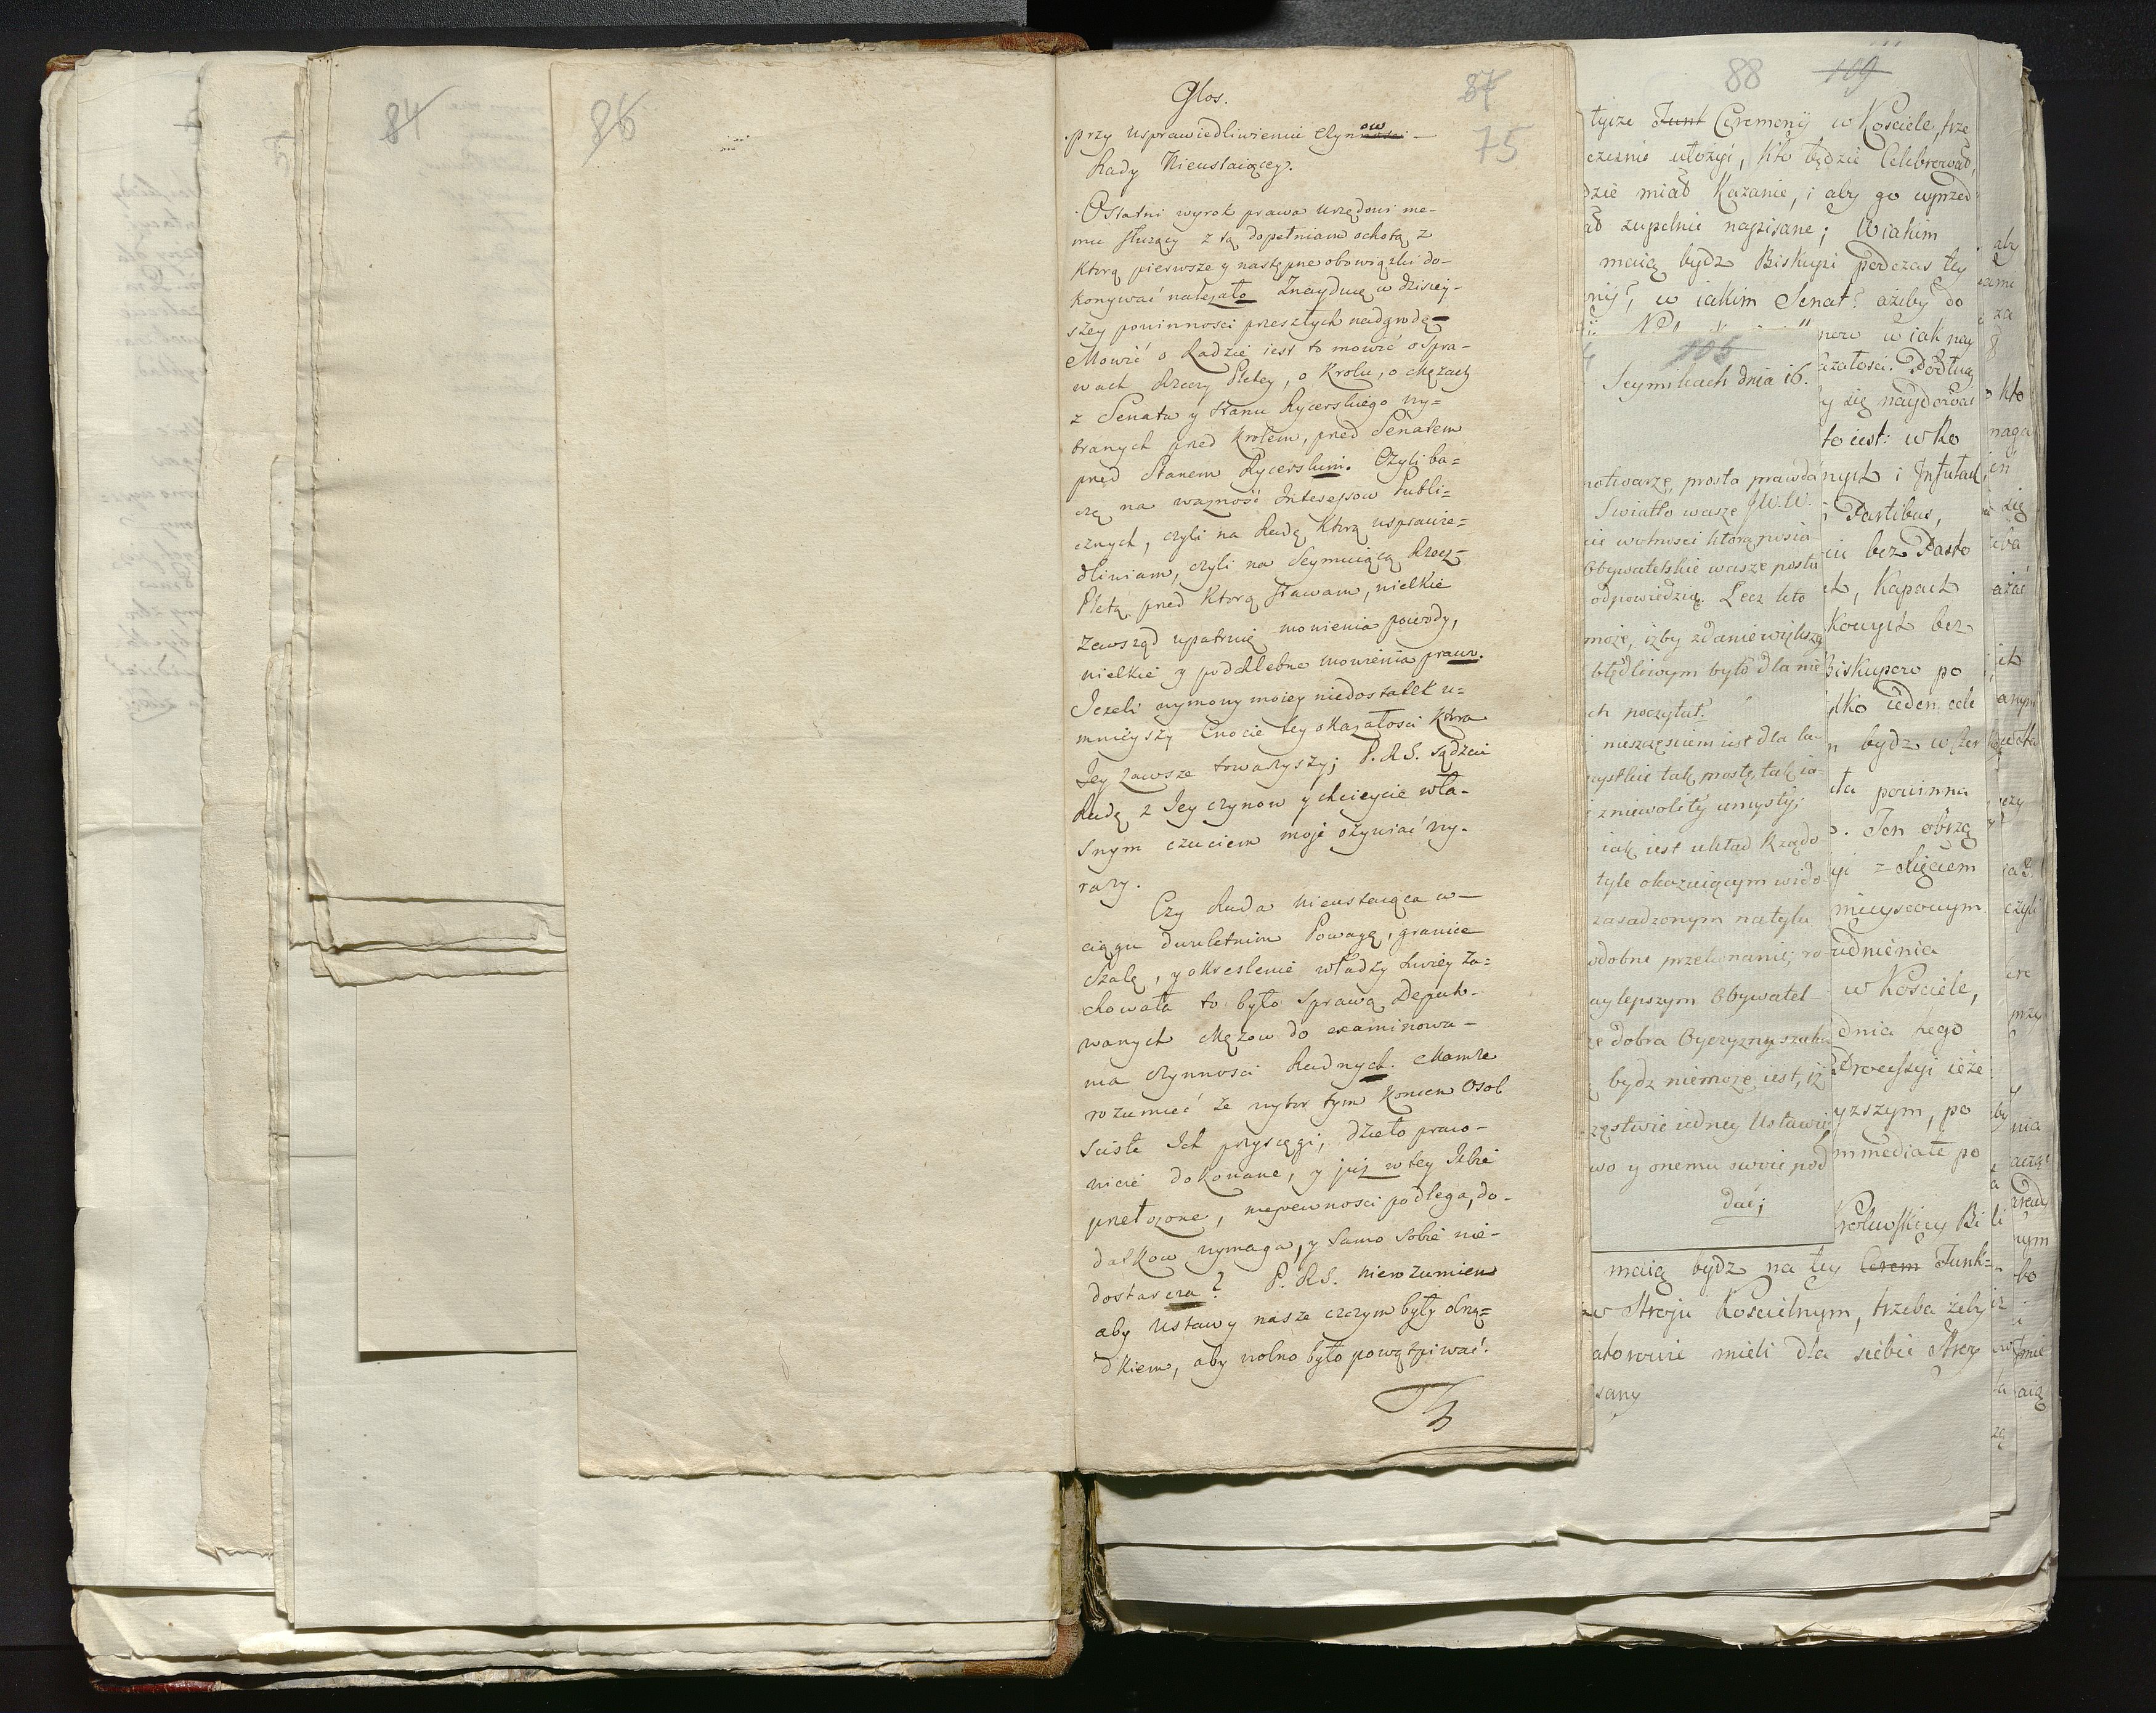 84
86
Glos.
87
75
przy usprawiedliwieniu Czynow
Rady Nieustaiącey.
Ostatni wyrok prawa urzędowi me-
mu służący z tą dopełniam ochotą z
Ktorą pierwsze y następne obowiązki do-
konywać należało Znayduię w dzisiey-
szey powinnosci przeszłych nadgrodę
Mowić o Radzie iest to mowić o Spra-
wach Rzeczy Pltey, o Krolu, o Mężach
z Senatu y stanu Rycerskiego wy=
branych przed Krolem, przed Senatem
przed Stanem Rycerskim. Czyli ba=
czę na ważność Interessow Publi=
cznych, czyli na Radę Ktorą usprawie=
dliwiam, czyli na Seymuiącą Rzecz-
Pltą przed Ktorą stawam, wielkie
zewsząd upatruię mowienia powody,
wielkie y podchlebne mowienia praw.
Jezeli wymowy moiey niedostatek u=
mnieyszy Cnocie tey okazałosci Ktora
Jey zawsze towarzyszy; P.R.S. sądźcie
Radę z Jey czynow y chcieycie wła-
snym czuciem moje ożywiać wy-
razy.
Czy Rada Nieustaiąca w-
ciągu dwuletnim Powagę, granice
Szalę, y okreslenie władzy swoiey za=
chowała to było sprawą Deputo-
wanych Mężow do examinowa-
nia czynnosci Radnych. Mamże
rozumieć że wybor tym Koncem Osob
scisłe Ich przysięgi, dzieło praco-
wicie dokonane, y już w tey Izbie
przełożone, niepewnosci podlega, do-
datkow wymaga, y samo sobie nie-
dostarcza? P.R.S. nierozumiem
aby Ustawy nasze czczym były obrzą=
dkiem, aby wolno było powątpiwać.
88 109
tycze Funt Ceremonij w Kosciele, trze
czesnie ułożyć, kto będzie Celebrował,
dzie miał Kazanie, i aby go uprzed
ał zupelnie napisane; W iakim
maią bydz Biskupi podczas tey
nij?, w iakim Senat? ażeby do
105
Seymikach dnia 16.
potwarzę, prosta prawda
Swiatło wasze J.W.W.
cie wolnosci ktorą posia
Obywatelskie wasze postu
odpowiedzią. Lecz kto
może, iżby zdanie większą
błędliwym było dla nie
ch poczytał?
nieszczęsciem iest dla lu
zystkie tak prostą, tak ia
zniewoliły umysły;
iak iest układ Rządo
tyle okazuiącym wido
zasadzonym na tylu
odobne przekonanie; ro
aylepszym Obywatel
że dobra Oyczyzny szuka
bydz niemoże iest, iż
zęstwie iedney Ustawie
wo y onemu swoie pod
dać;
now w iak nay
azałosci. Podług
y się nayduować
to iest: w Ko
nych i Infułach
Partibus,
iu bez Pasto
ch, Kapach
kowych bez
Biskupow po
ylko ieden cele
bydz w Ser
ta powinna
. Ten obrzą
yi = Xięciem
mieyscowym
udnienia
w Kosciele,
dnia tego
Processyi ieże
yzszym, po
immediate po
Krolewskiey Bi
maią bydz na tey Cerem Funk-
w Stroju Koscielnym, trzeba żeby
atorowie mieli dla siebie Stroy
sany